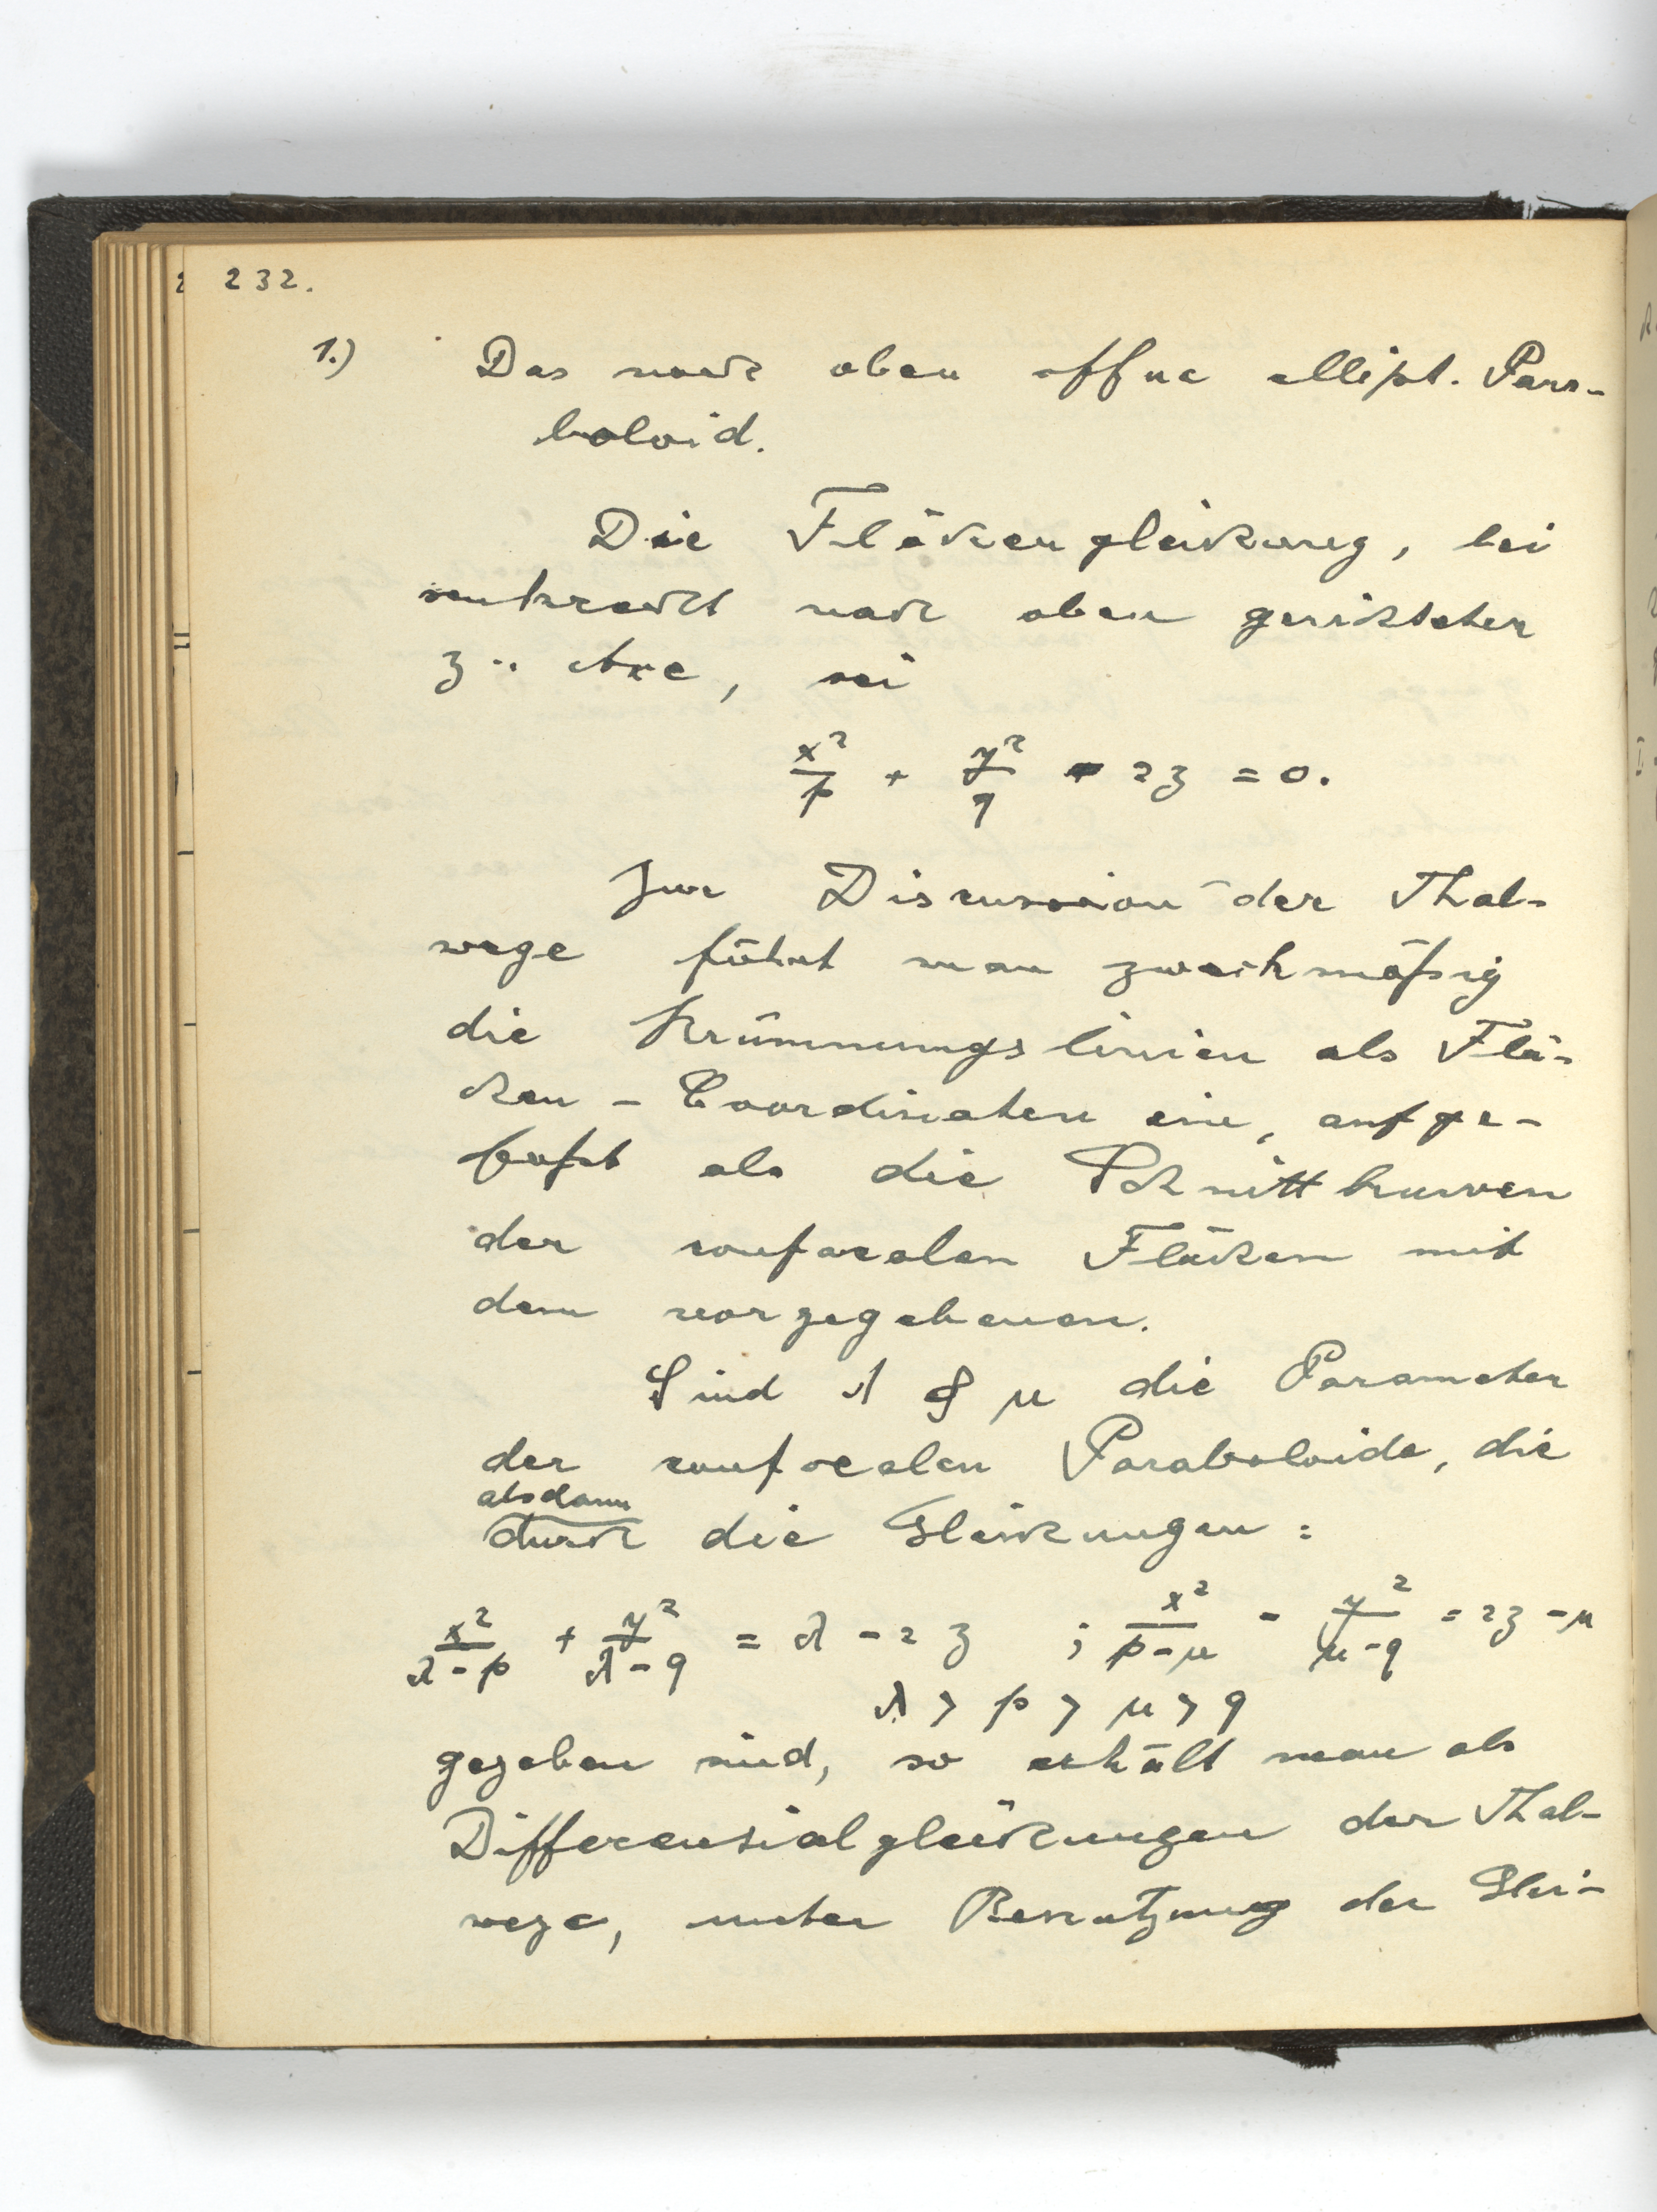 232.
1.) Das nach oben offne ellipt. Para-
boloid.
Die Flächengleichung, bei
senkrecht nach oben gerichteter
z-Axe, sei
x²/p + y²/q - 2z = 0.
Zur Discussion der Thal-
wege führt man zweckmäßig
die Krümmungslinien als Flä-
chen-Coordinaten ein, aufge-
faßt als die Schnittkurven
der confocalen Flächen mit
dem vorgegebenen.
Sind λ & μ die Parameter
der confocalen Paraboloide, die
alsdann
durch die Gleichungen:
x²/(λ-p) + y²/(λ-q) = λ - 2z ; x²/(p-μ) - y²/(μ-q) = 2z - μ
λ > p > μ > q
gegeben sind, so erhält man als
Differentialgleichungen der Thal-
wege, unter Benutzung der Glei-